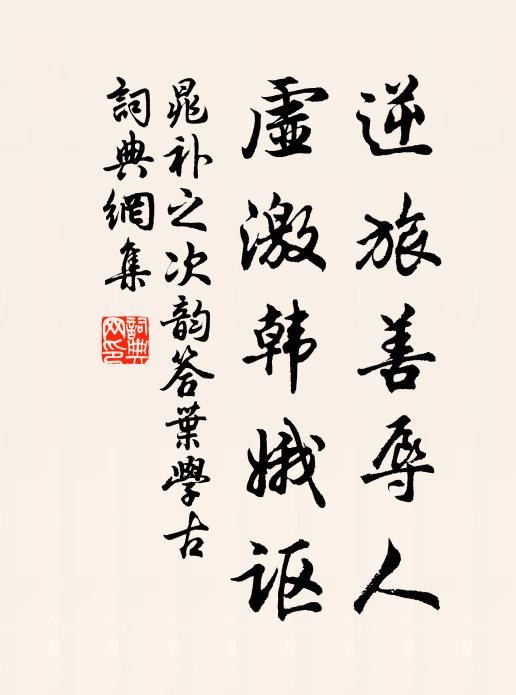 逆旅善辱人
虚激韩娥讴
晁补之次韵答葉學古
詞典網集
詞典網印